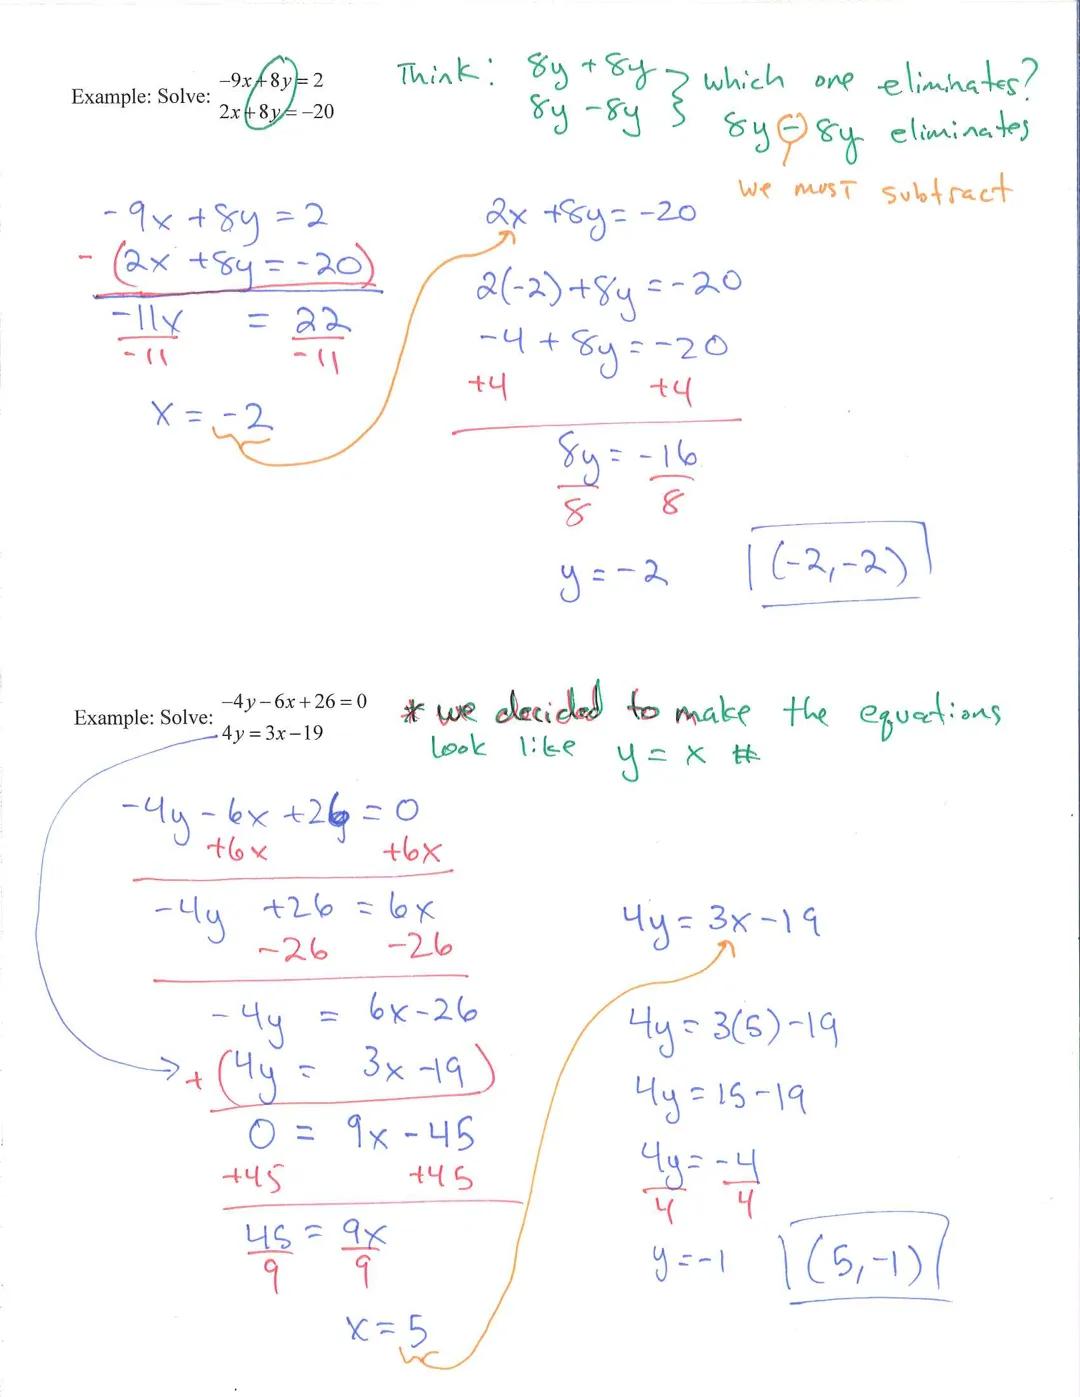 Example: Solve: -9x+8y=2
2x+8y=-20
Think: 8y + 8y
8y - 8y } which one eliminates?
8y - 8y eliminates
we must subtract
-9x + 8y = 2
- (2x + 8y = -20)
-11x = 22
-11 -11
x = -2
2x + 8y = -20
2(-2) + 8y = -20
-4 + 8y = -20
+4 +4
8y = -16
8 8
y = -2
(-2, -2)
Example: Solve: -4y-6x+26=0
4y=3x-19
* we decided to make the equations
look like y = x #
-4y - 6x + 26 = 0
+6x +6x
-4y +26 = 6x
-26 -26
-4y = 6x - 26
+ (4y = 3x - 19)
0 = 9x - 45
+45 +45
45 = 9x
9 9
x = 5
4y = 3x - 19
4y = 3(5) - 19
4y = 15 - 19
4y = -4
4 4
y = -1
(5, -1)